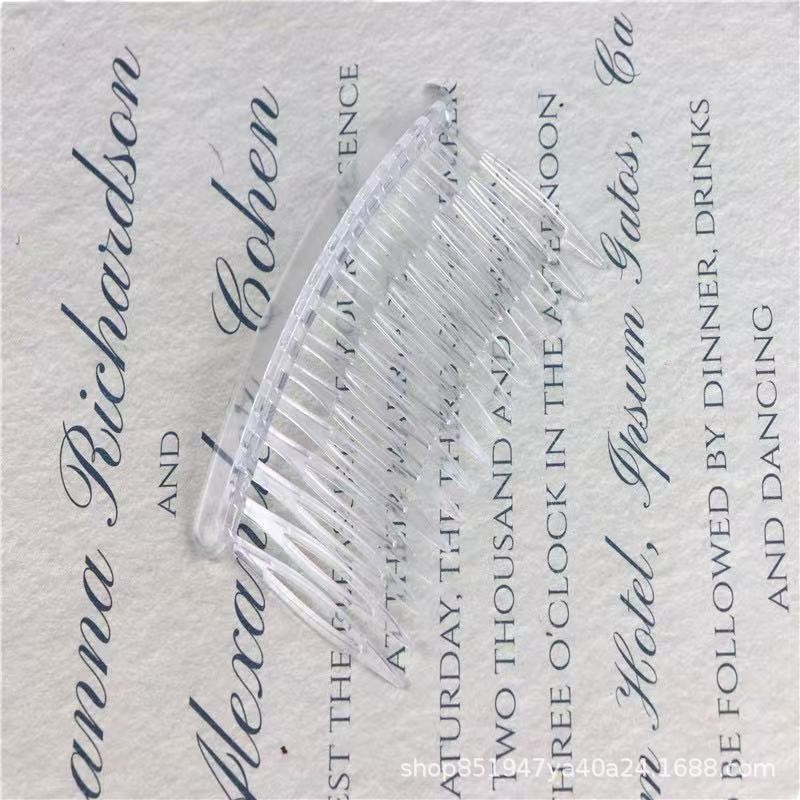 anna Richardson
AND
Cohen
EST THE PLEASURE OF YOUR
AT THE
ATURDAY, THE THIRD
TWO THOUSAND AND
THREE O'CLOCK IN THE AFTERNOON
m Hotel, Ipsum Gatos, Ca
BE FOLLOWED BY DINNER, DRINKS
AND DANCING
shop851947ya40a24.1688.com